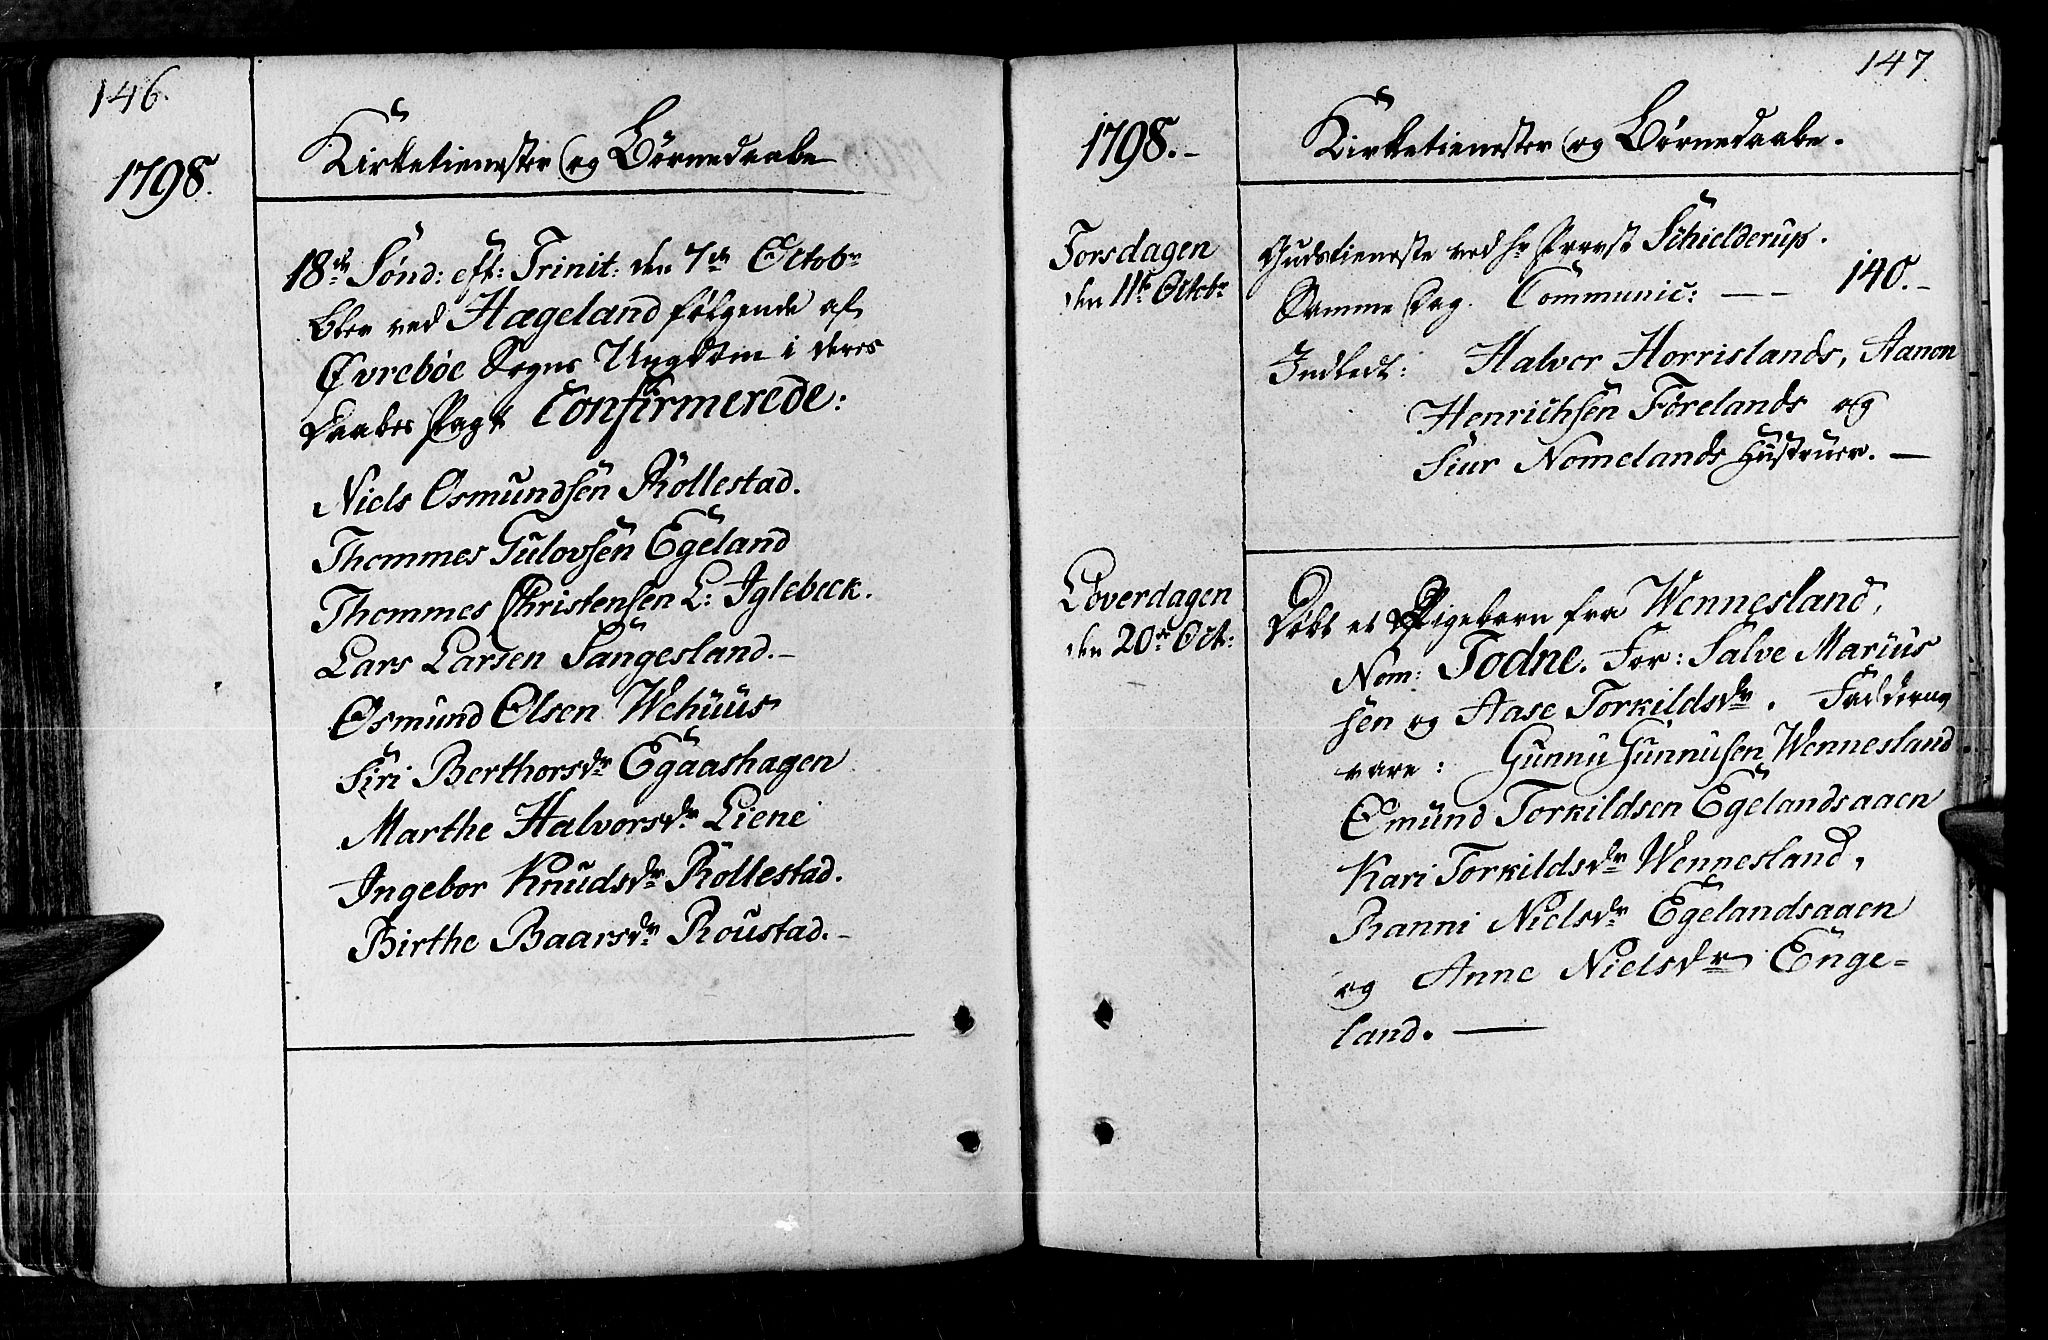 146.
1798.
Kirketienester og Børnedaabe
18de Sønd: eft: Trinit: den 7de Octobr
blev ved Hægeland følgende af
Øvrebøe Sogns Ungdom i deres
Daabes Pagt Confirmerede:
Niels Osmundsen Röllestad.
Thommes Gulovsen Egeland
Thommes Christensen L: Iglebeck.
Lars Larsen Sangesland.-
Osmund Olsen Wehuus
Siri Berthorsdr Egaashagen
Marthe Halvorsdr Liene
Ingebor Knudsdr Röllestad.
Birthe Baarsdr Roustad.-
147
1798.-
Kirketienester og Børnedaabe.
Torsdagen
den 11te Octobr
Gudstieneste ved Hr Provst Schielderup.
Samme Dag. Communic: -- 140.-
Indledt: Halvor Horrislands, Aanon
Henrichsen Førelands og
Siur Nomelands Hustruer. -
Løverdagen
den 20de Oct:
Døbt et Pigebarn fra Wennesland,
Nom: Todne. For: Salve Marius
sen og Aase Torkildsdr. Fadderne
vare: Gunnu Gunnusen Wennesland
Emund Torkildsen Egelandsaaen
Kari Torkildsdr Wennesland,
Ranni Nielsdr Egelandsaaen
og Anne Nielsdr Enge=
land. -